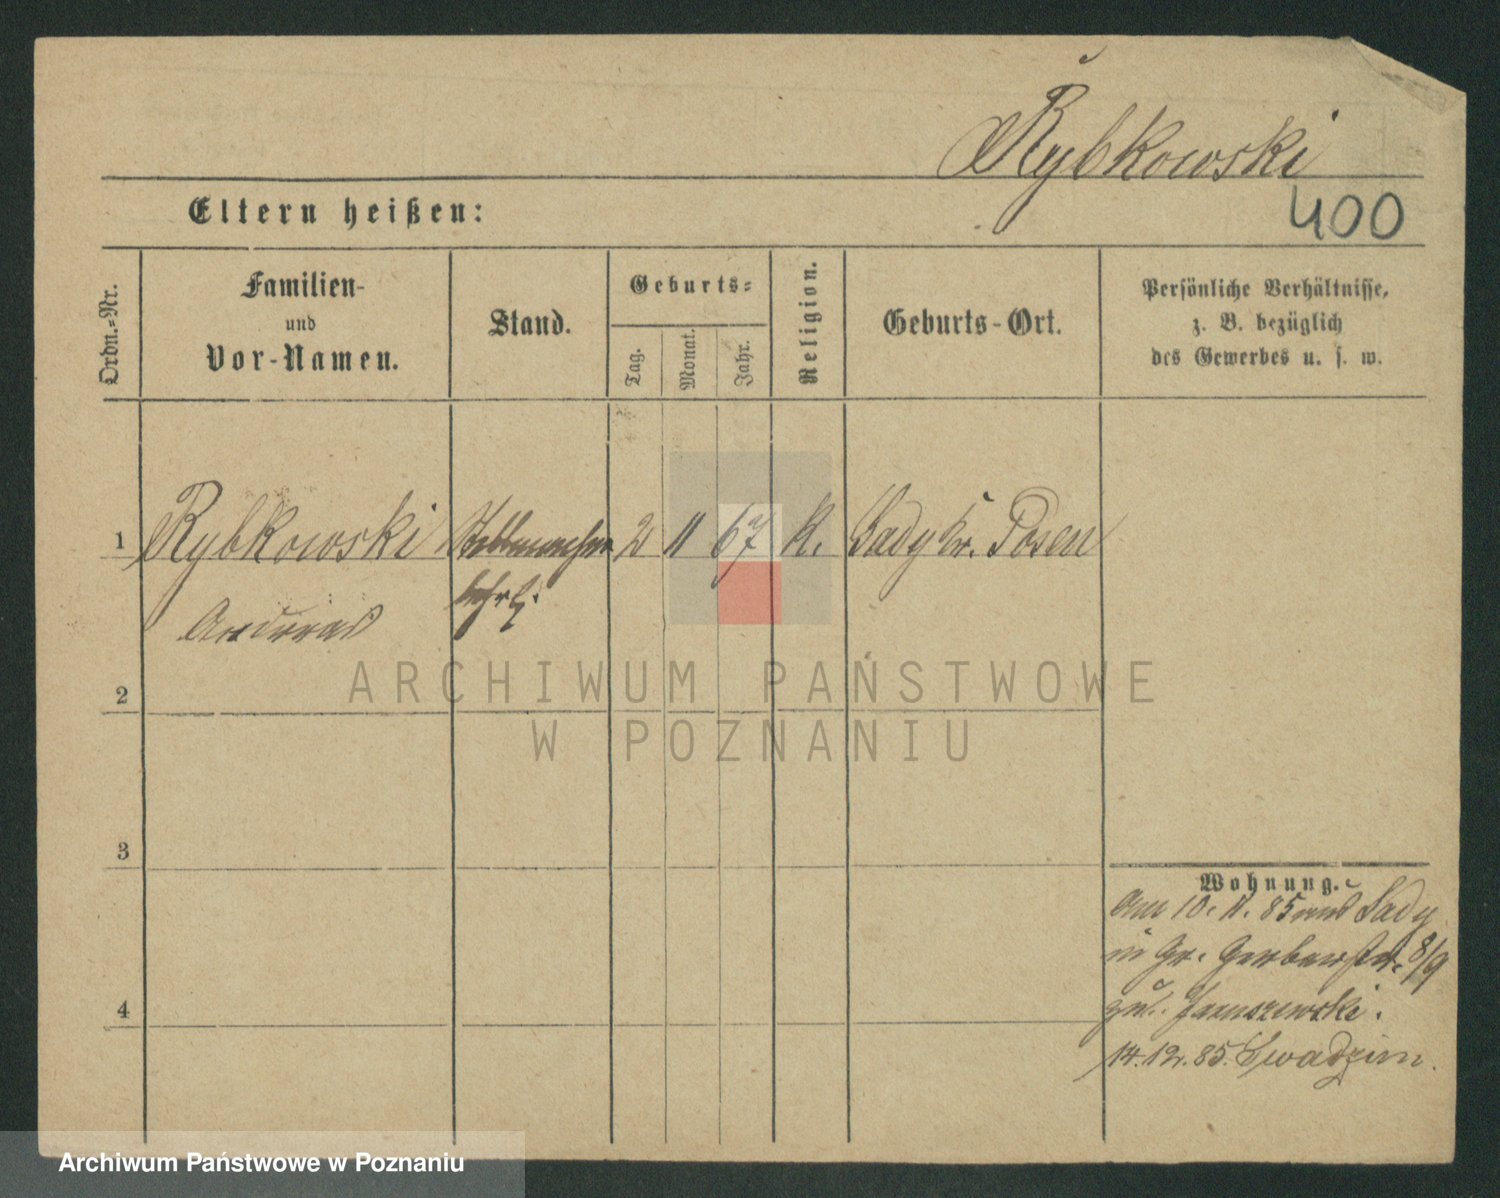 Rybkowski
400
Eltern heißen:
Ordn.-Nr.
Familien-
und
Vor-Namen.
Stand.
Geburts-
Tag.
Monat.
Jahr.
Religion.
Geburts-Ort.
Persönliche Verhältnisse,
z. B. bezüglich
des Gewerbes u. s. w.
1 Rybkowski Stellmacher 2 11 67 K. Sady Kr. Posen
Andreas lehrlg.
2
3
4
Wohnung.
Am 10. 11. 85 aus Sady
in Gr. Gerberstr. 8/9
zu Januszewski.
14.12.85. Swadzim.
ARCHIWUM PAŃSTWOWE
W POZNANIU
Archiwum Państwowe w Poznaniu